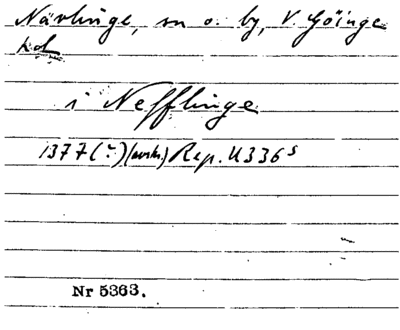 Nävlinge, sn o. by, V. Göinge
hd
i Nefflinge
1377(?)(avskr.) Rep. II 336 s
Nr 5363.